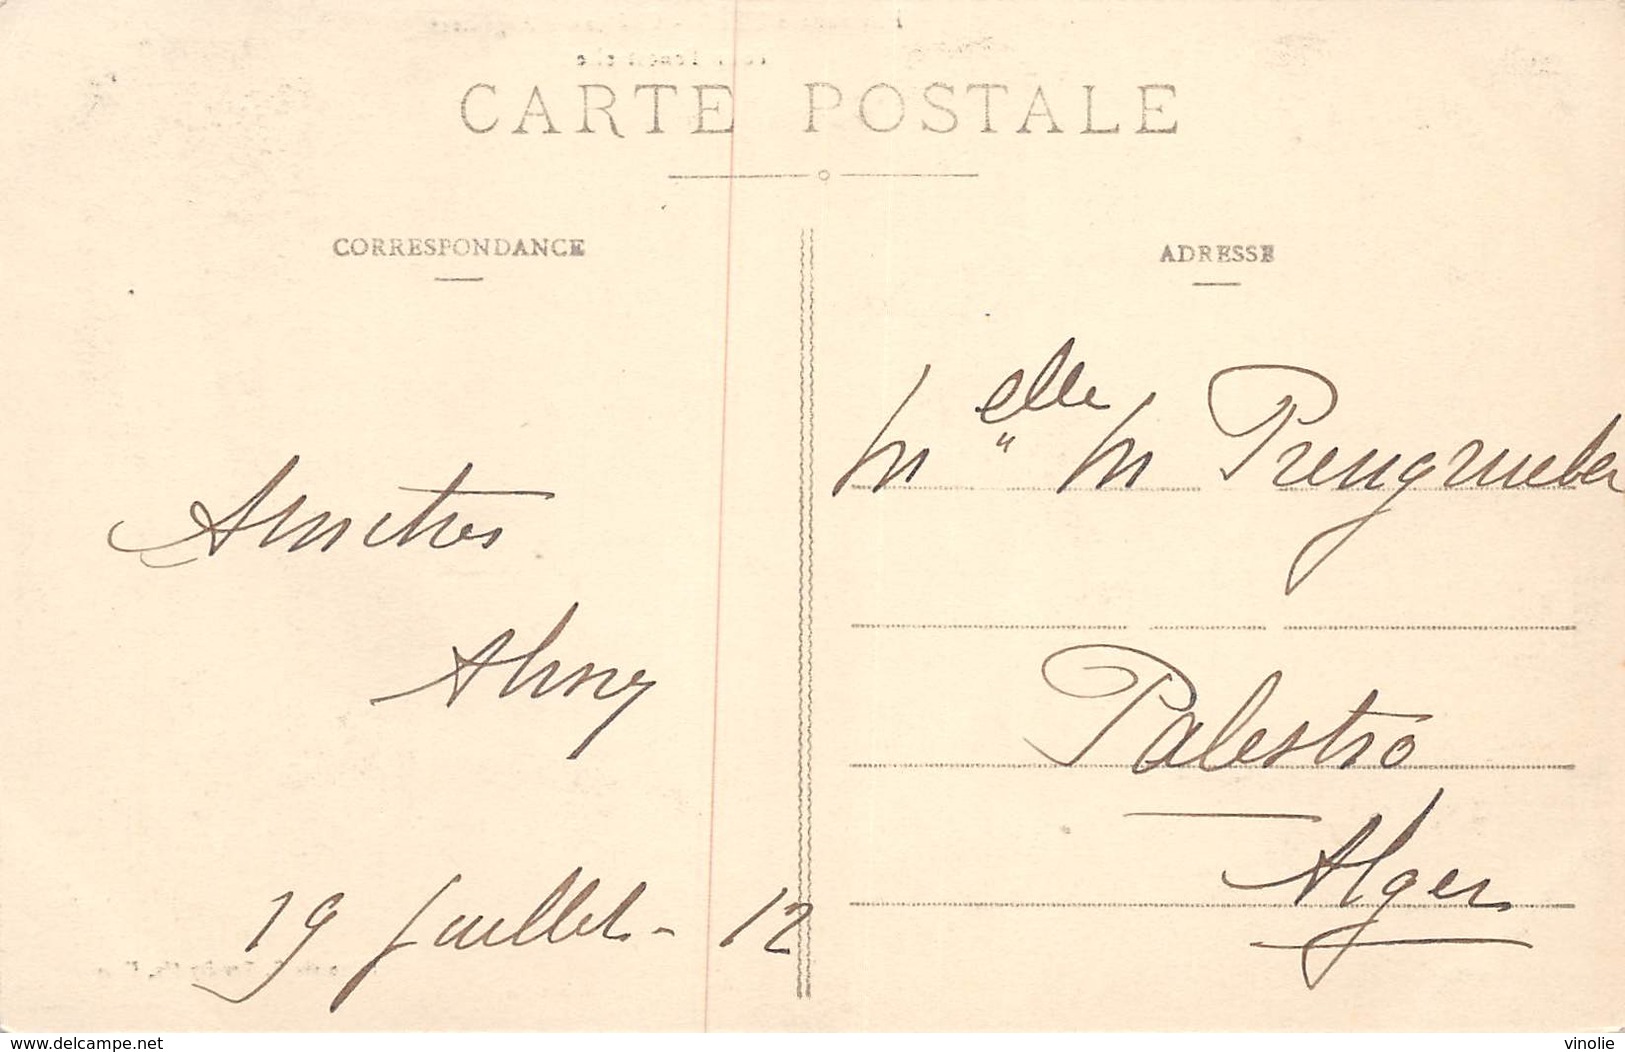 CARTE POSTALE
CORRESPONDANCE
ADRESSE
Melle M Prengrueber
Amitiés
Palestro
Alger
19 Juillet - 12
www.delcampe.net
vinolie